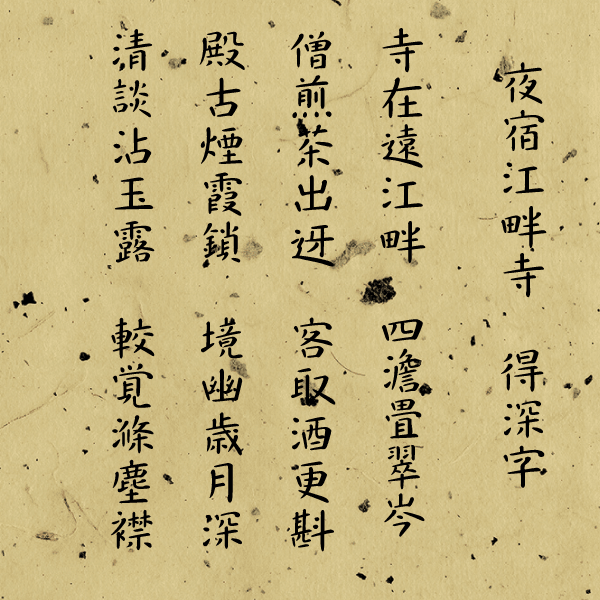 夜宿江畔寺 得深字
寺在遠江畔 四澹畳翠岑
僧煎茶出迓 客取酒更斟
殿古煙霞鎖 境幽歳月深
清談沾玉露 較覚滌塵襟